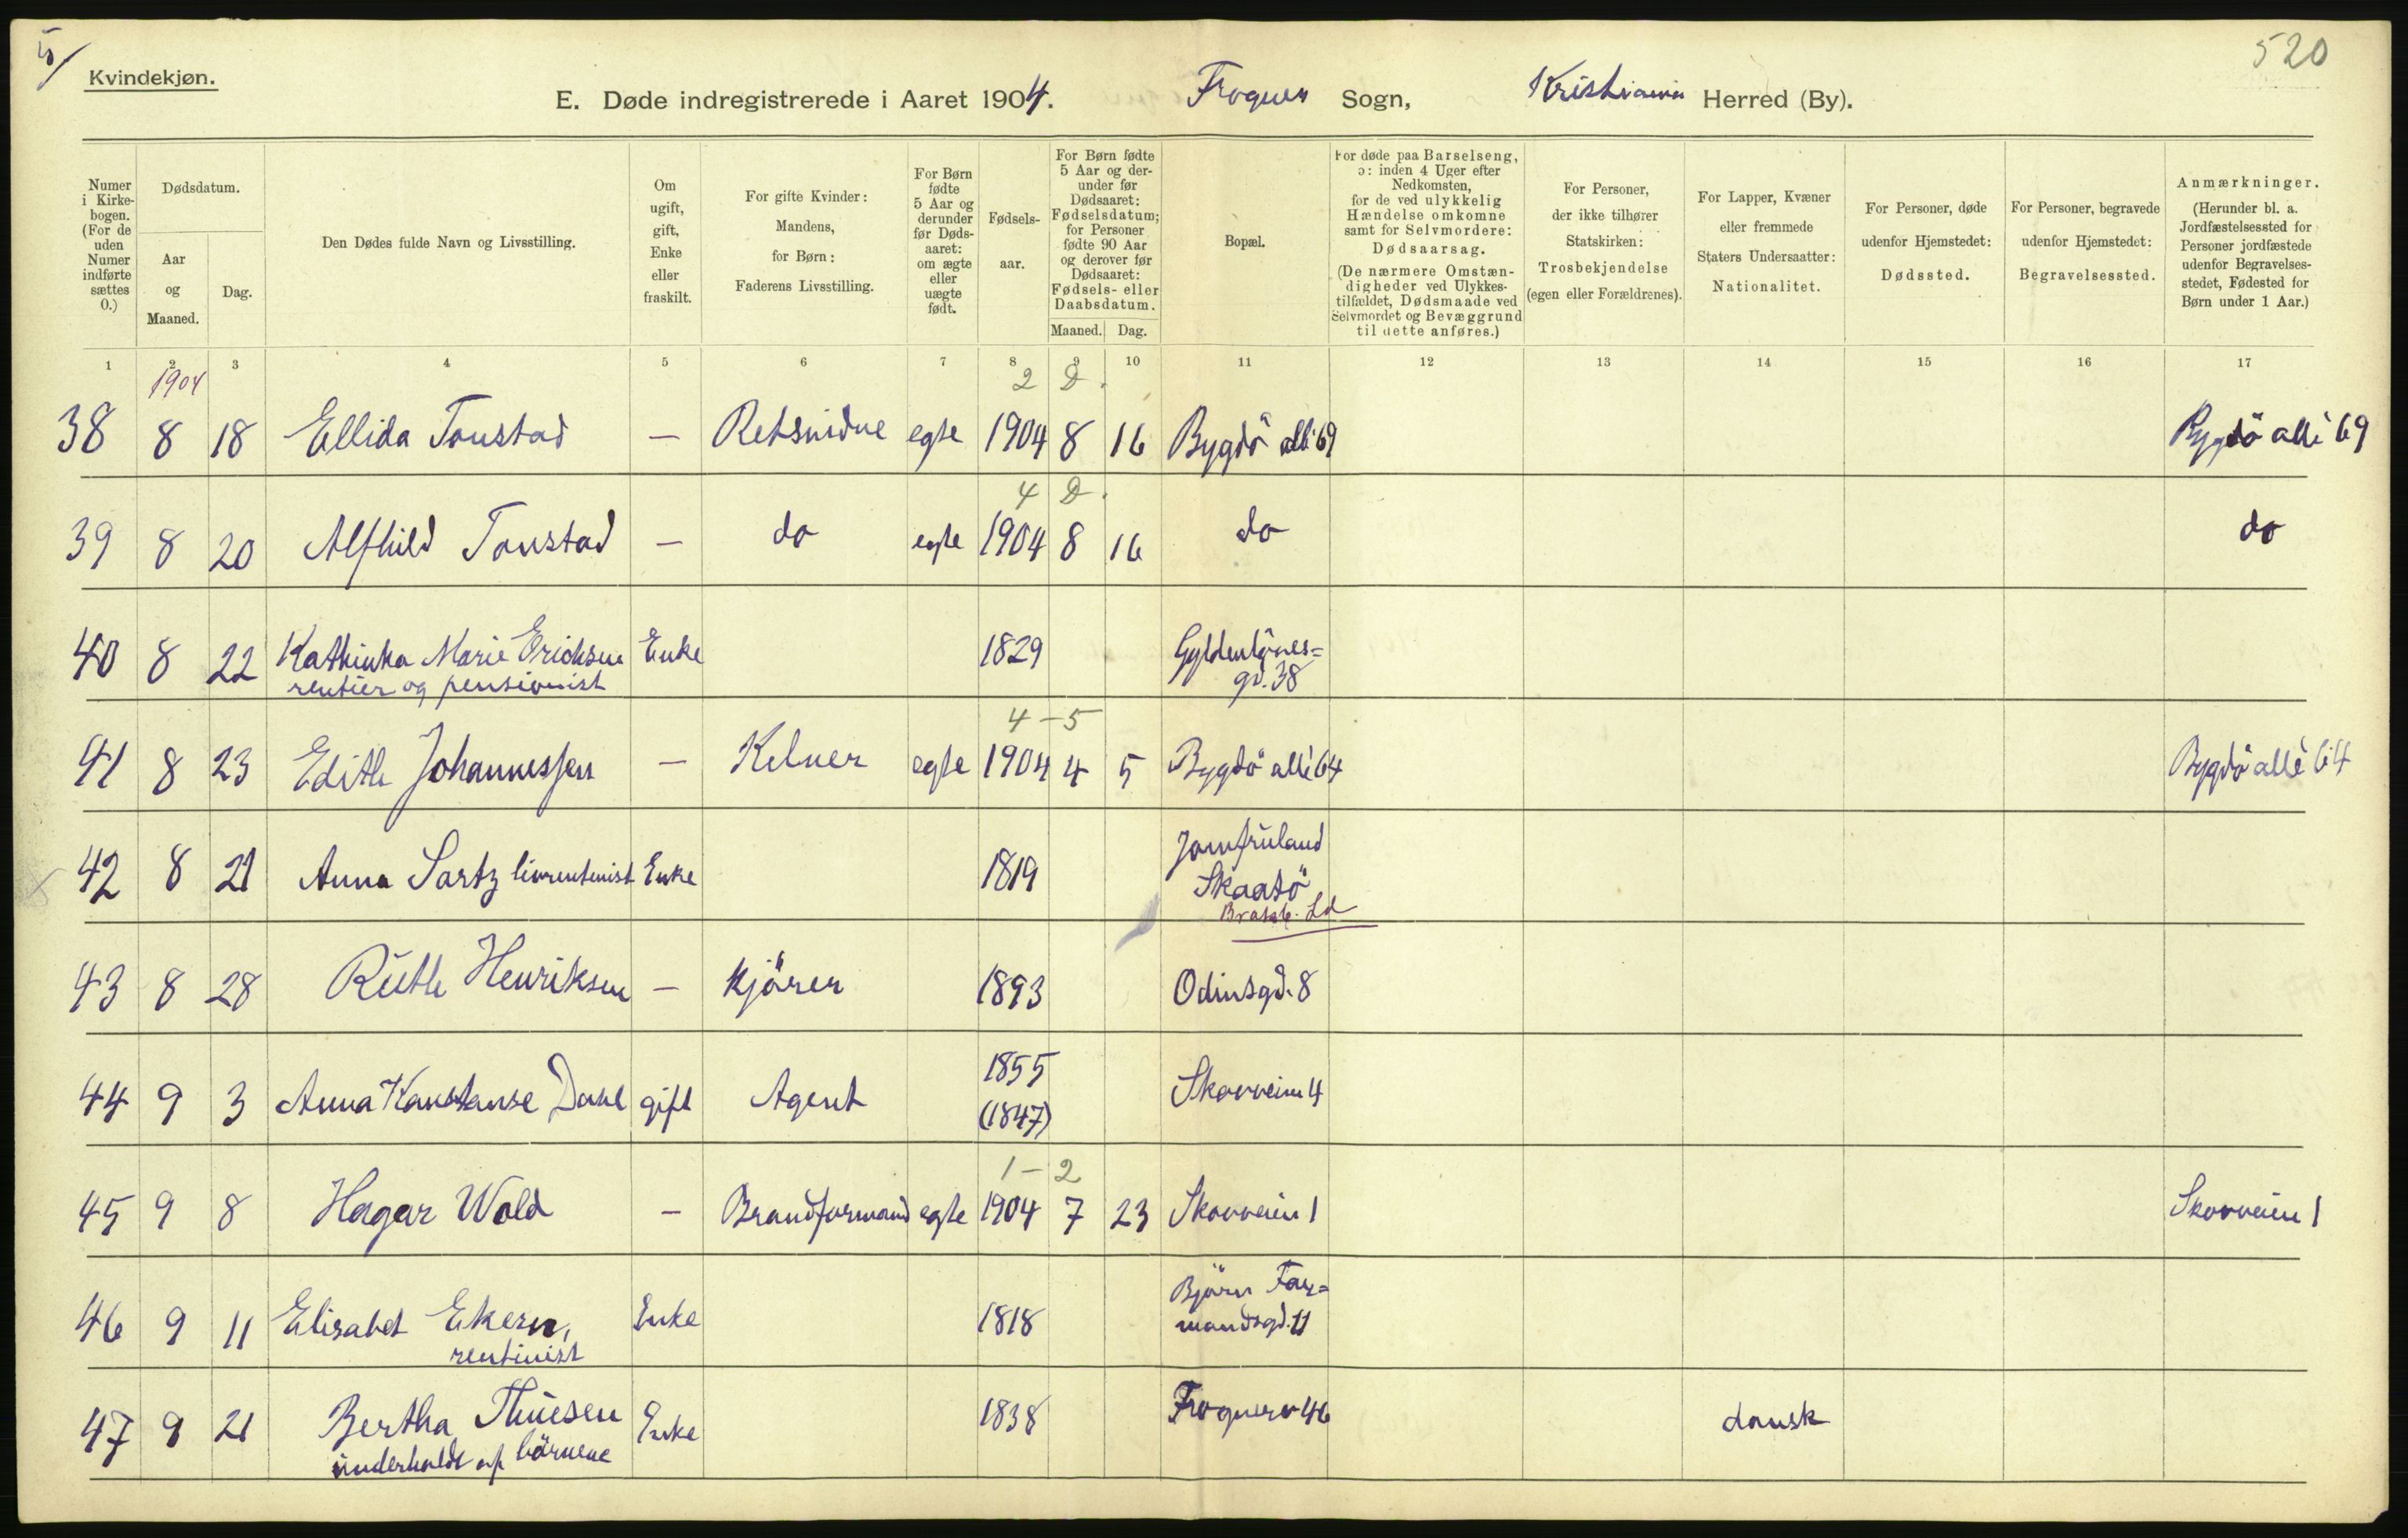 5/
Kvindekjøn.
520
E. Døde indregistrerede i Aaret 1904. Frogner Sogn, Kristiania Herred (By).
Numer i Kirkebogen. (For de uden Numer indførte sættes 0.)
Dødsdatum.
Aar og Maaned.
Dag.
Den Dødes fulde Navn og Livsstilling.
Om ugift, gift, Enke eller fraskilt.
For gifte Kvinder: Mandens, for Børn: Faderens Livsstilling.
For Børn fødte 5 Aar og derunder før Dødsaaret: om ægte eller uægte født.
Fødselsaar.
For Børn fødte 5 Aar og derunder før Dødsaaret: Fødselsdatum; for Personer fødte 90 Aar og derover før Dødsaaret: Fødsels- eller Daabsdatum.
Maaned. Dag.
Bopæl.
For døde paa Barselseng, ɔ: inden 4 Uger efter Nedkomsten, for de ved ulykkelig Hændelse omkomne samt for Selvmordere: Dødsaarsag. (De nærmere Omstændigheder ved Ulykkestilfældet, Dødsmaade ved Selvmordet og Bevæggrund til dette anføres.)
For Personer, der ikke tilhører Statskirken: Trosbekjendelse (egen eller Forældrenes).
For Lapper, Kvæner eller fremmede Staters Undersaatter: Nationalitet.
For Personer, døde udenfor Hjemstedet: Dødssted.
For Personer, begravede udenfor Hjemstedet: Begravelsessted.
Anmærkninger. (Herunder bl. a. Jordfæstelsessted for Personer jordfæstede udenfor Begravelsesstedet, Fødested for Børn under 1 Aar.)
1 2 3 4 5 6 7 8 9 10 11 12 13 14 15 16 17
1904
2 D.
38 8 18 Ellida Tonstad — Retsvidne egte 1904 8 16 Bygdö allé 69 Bygdö allé 69
4 D.
39 8 20 Alfhild Tonstad — do egte 1904 8 16 do do
40 8 22 Kathinka Marie Ericksen Enke 1829 Gyldenlöves=
rentier og pensionist gd. 38
4 – 5
41 8 23 Edith Johannessen — Kelner egte 1904 4 5 Bygdö allé 64 Bygdö allé 64
Jomfruland
42 8 21 Anna Sartz livrentenist Enke 1819 Skaatö
Bratsb. Ld
43 8 28 Ruth Henriksen — kjörer 1893 Odinsgd. 8
1855
44 9 3 Anna Konstanse Dahl gift Agent (1847) Skovveien 4
1 – 2
45 9 8 Hagar Wold — Brandformand egte 1904 7 23 Skovveien 1 Skovveien 1
Björn Far=
46 9 11 Elisabet Ekern, Enke 1818 mandsgd. 11
rentinist
47 9 21 Bertha Thuesen Enke 1838 Frognerv 46 dansk
underholdt af börnene